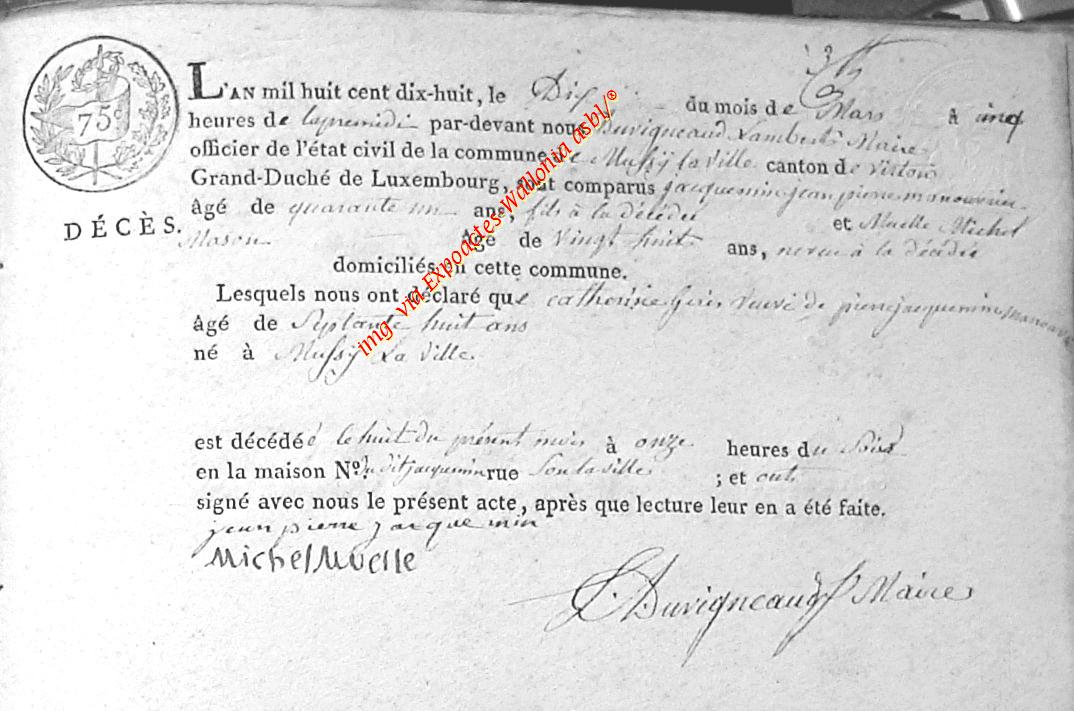 75c
L'AN mil huit cent dix-huit, le Dix du mois de Mars à cinq
heures de lapremidi par-devant nous Duvigneaud Lambert Maire
officier de l'état civil de la commune de Mussy la ville canton de virton
Grand-Duché de Luxembourg, sont comparus jacquemin jean pierre manouvrier
âgé de quarante un ans, fils à la décédée et Muelle Michel
DÉCÈS.
Mason âgé de vingt huit ans, neveu à la décédée
domiciliés en cette commune.
Lesquels nous ont déclaré que catherine veuve de pierre jacquemin manouvrier
âgé de septante huit ans
né à Mussy La Ville
est décédée le huit du présent mois à onze heures du soir
en la maison No. du dit jacquemin rue sou la ville ; et ont
signé avec nous le présent acte, après que lecture leur en a été faite.
jean pierre jacque min
Michel Muelle
L. Duvigneaud Maire
img via Expoactes-Wallonia asbl/®